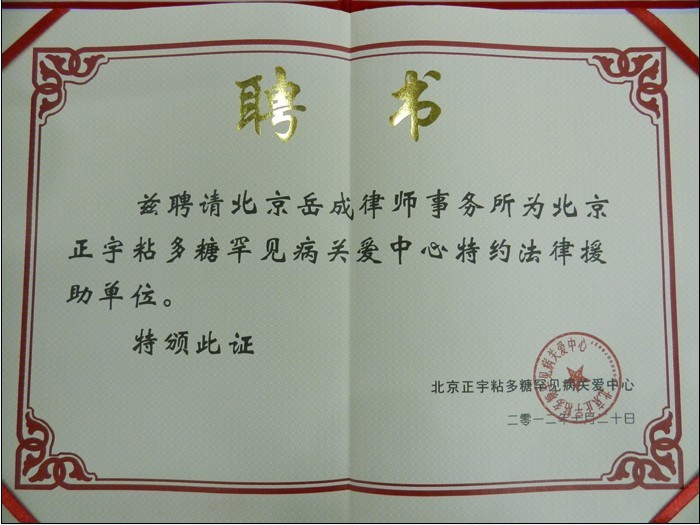 聘书
兹聘请北京岳成律师事务所为北京
正宇粘多糖罕见病关爱中心特约法律援
助单位。
特颁此证
北京正宇粘多糖罕见病关爱中心
北京正宇粘多糖罕见病关爱中心
二零一二年十月二十日